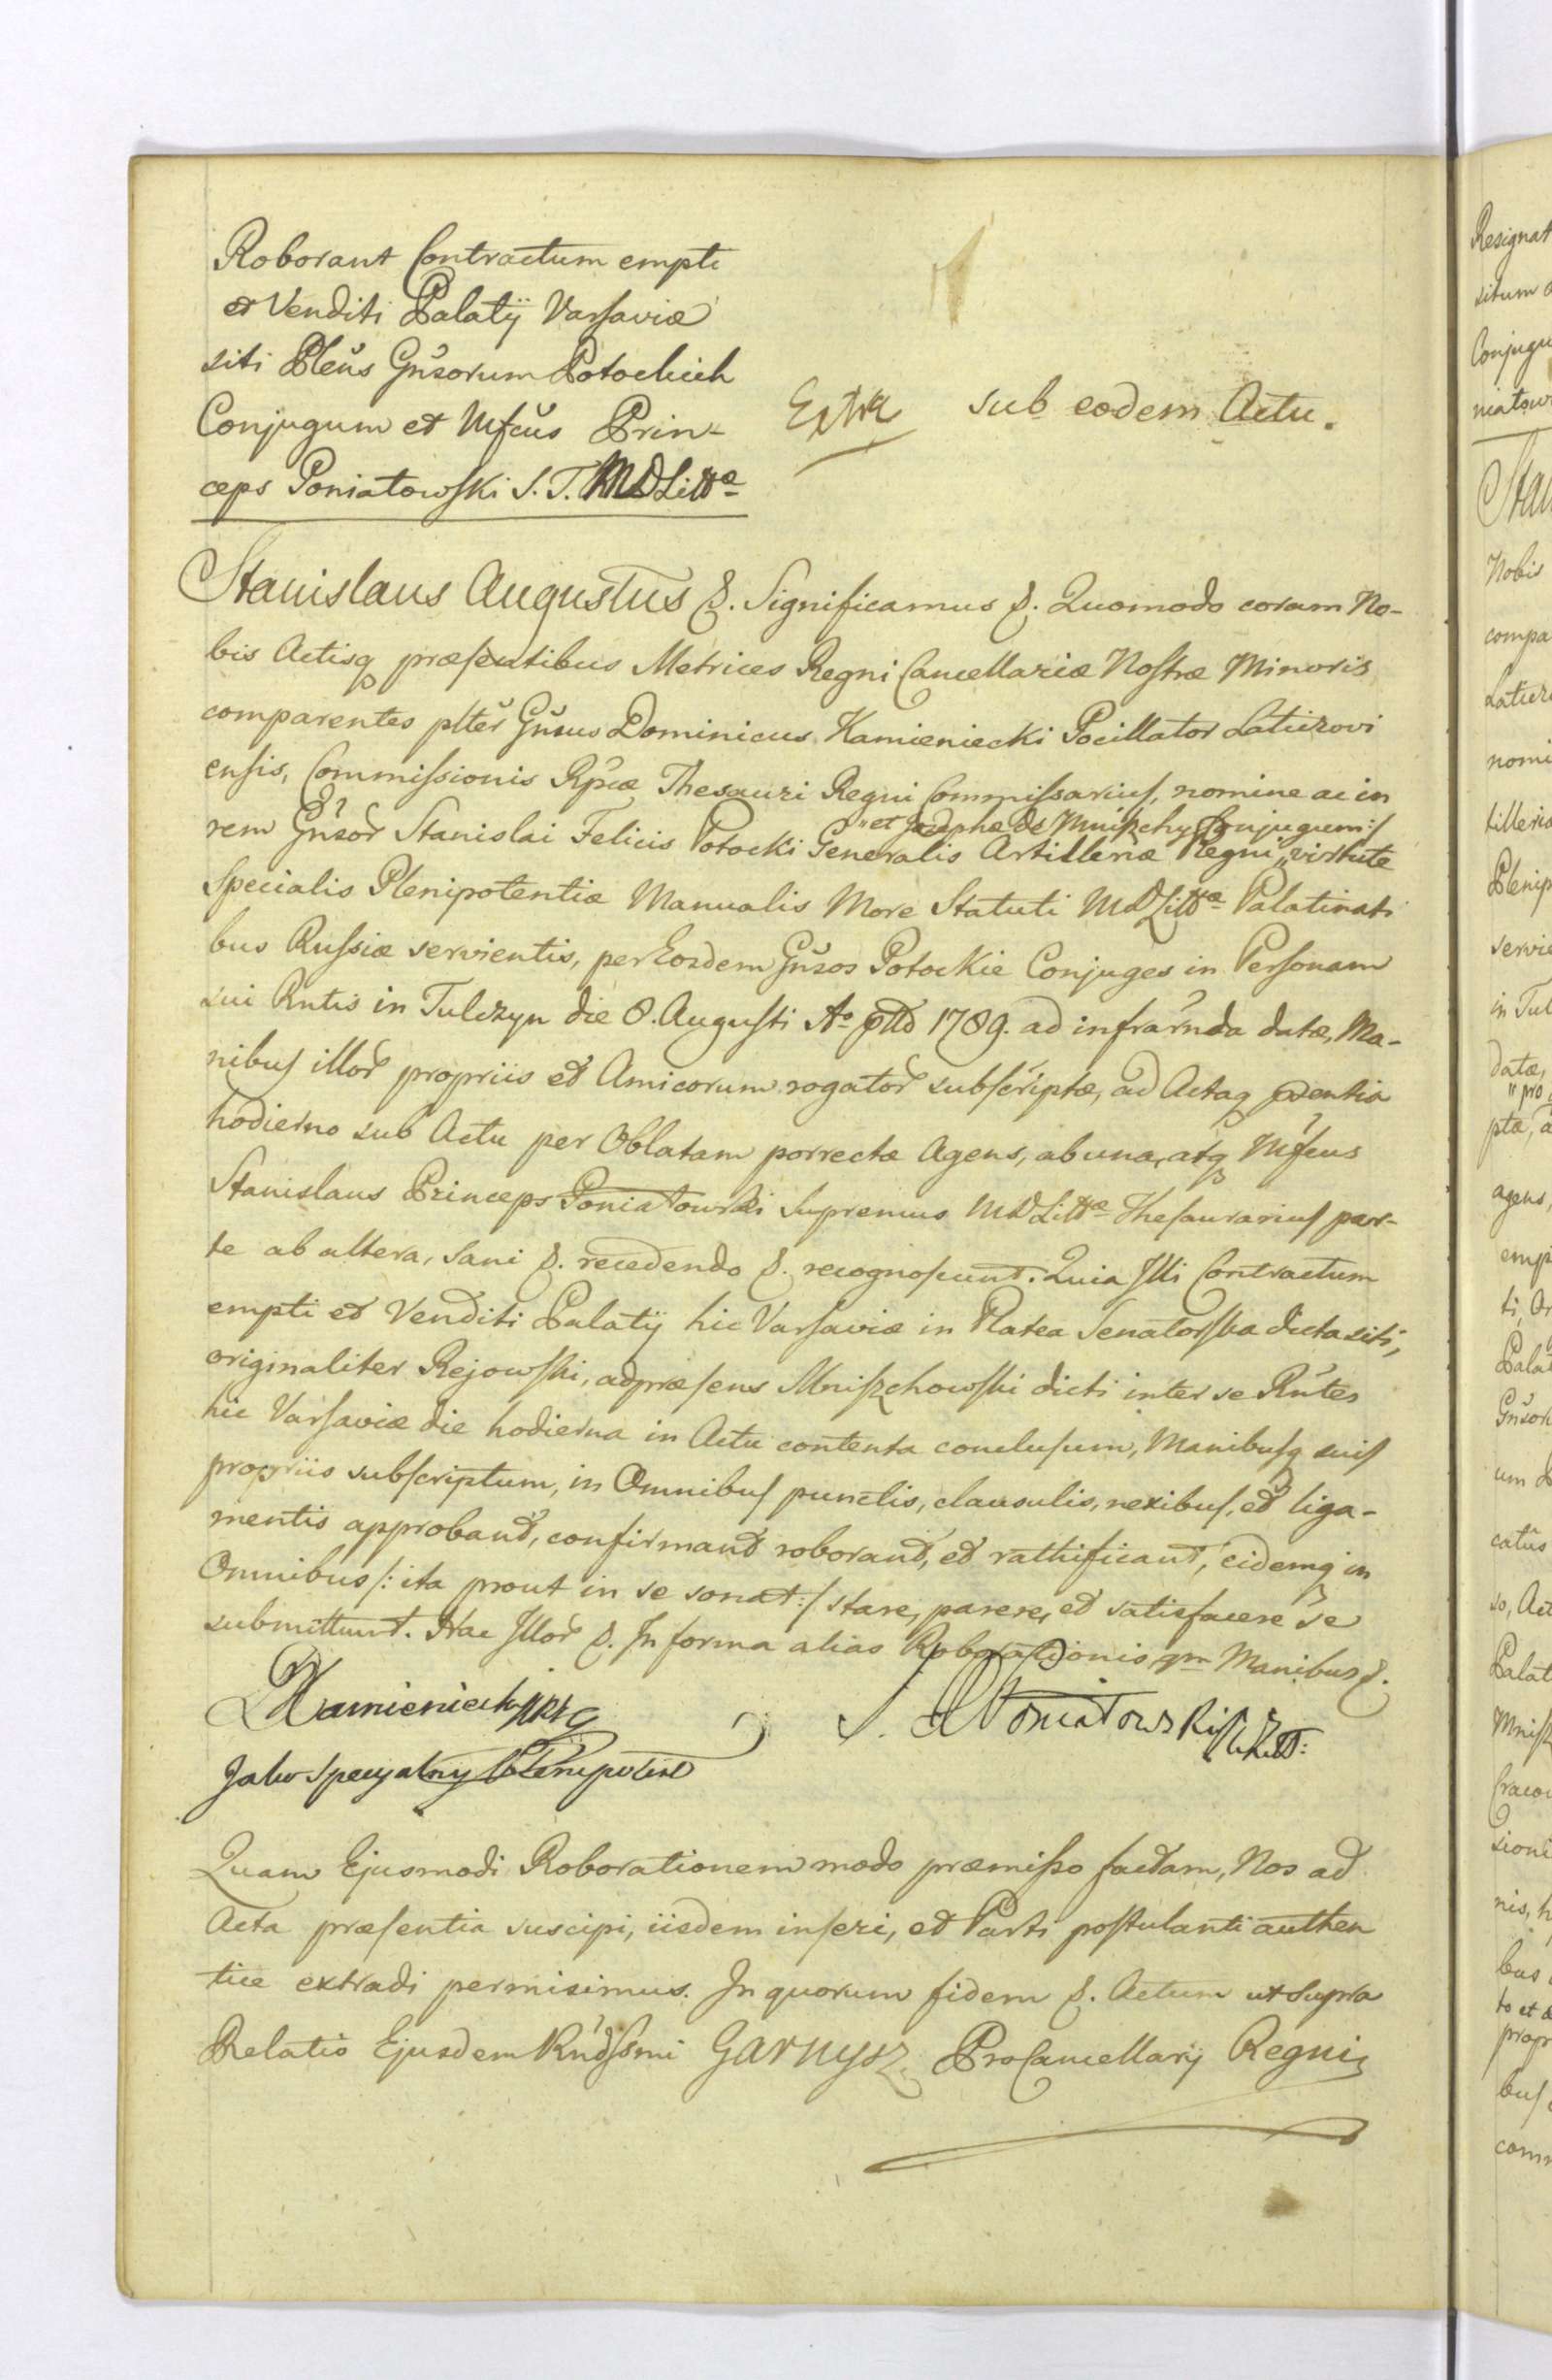 Roborant Contractum empti
et Venditi Palatij Varsaviæ
siti Plenus Gnsorum Potockich
Conjugum et Mfcus Prin-
ceps Poniatowski S. T. MDLittæ
Extra sub eodem Actu.
Stanislaus Augustus &. Significamus &. Quomodo coram No-
bis Actisq præsentibus Metrices Regni Cancellariæ Nostræ Minoris
comparentes plter Gnsus Dominicus Kamieniecki Pocillator Latiezovi
ensis, Commissionis Rpcæ Thesauri Regni Commissarius, nomine ac in
"et Josephæ de Mniszchy Conjugum:/
rem Gnsor Stanislai Felicis Potocki Generalis Artilleriæ Regni "virtute
Specialis Plenipotentiæ Manualis More Statuti MDLittæ Palatinati
bus Russiæ servientis, per Eosdem Gnsos Potockie Conjuges in Personam
sui Rntis in Tulczyn die 8. Augusti Ao pttd 1789. ad infrarnda datæ, Ma-
nibus illor propriis et Amicorum rogator subscriptæ, ad Actaq præntia
hodierno sub Actu per Oblatam porrectæ Agens, ab una, atq Mfcus
Stanislaus Princeps Poniatowski Supremus MDLittæ Thesaurarius par-
te ab altera, Sani &. recedendo &. recognoscunt. Quia Illi Contractum
empti et Venditi Palatij hic Varsaviæ in Platea Senatorska dicta siti,
originaliter Rejowski, adpræsens Mniszchowski dicti inter se Rntes
hic Varsaviæ die hodierna in Actu contenta conclusum, Manibusq suis
propriis subscriptum, in Omnibus punctis, clausulis, nexibus, et liga-
mentis approband, confirmand roborand, et rathificant, eidemq in
Omnibus /: ita prout in se sonat :/ stare, parere, et satisfacere se
submittunt. Hac Illor &. In forma alias Roborationis qm Manibus &.
DKamieniecki
S. X Poniatowski
Jako specyalny Plenipotent
Quam Ejusmodi Roborationem modo præmisso factam, Nos ad
Acta præsentia suscipi, iisdem inseri, et Parti postulanti authen
tice extradi permisimus. In quorum fidem &. Actum ut Supra
Relatio Ejusdem Rndssmi Garnysz ProCancellarij Regni
Resignat
situm
Conjugu
niatow
Stan
Nobis
compa
Laticz
nomi
tilleriæ
Plenip
servie
in Tul
datæ,
"pro
ptæ, a
agens,
empt
ti,
Palat
Gnsor
um
catus
so, Act
Palat
Mnisz
Cracov
sioni
nis, h
bus
to et
propr
bus
comm